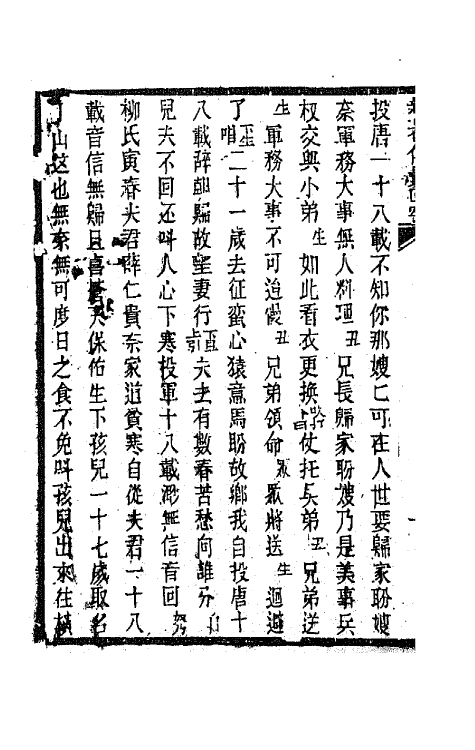 投唐一十八載不知你那嫂亡可在人世要歸家盼嫂
奈軍務大事無人料理丑兄長歸家盼嫂乃是美事兵
权交與小弟生如此看衣更換唱仗托矢弟丑兄弟送
生軍務大事不可迨慢丑兄弟領命眾眾將送生迴避
了生唱二十一歲去征蛮心猿意馬盼故鄉我自投唐十
八載辞朝歸故望妻行夫主有數春苦愁向誰分
兒夫不回还呌人心下寒投軍十八載渺無信音回
柳氏寅春夫君薛仁貴奈家道貧寒自從夫君一十八
載音信無歸且喜蒼天保佑生下孩兒一十七歲取名
丁山这也無奈無可度日之食不免呌孩兒出來往